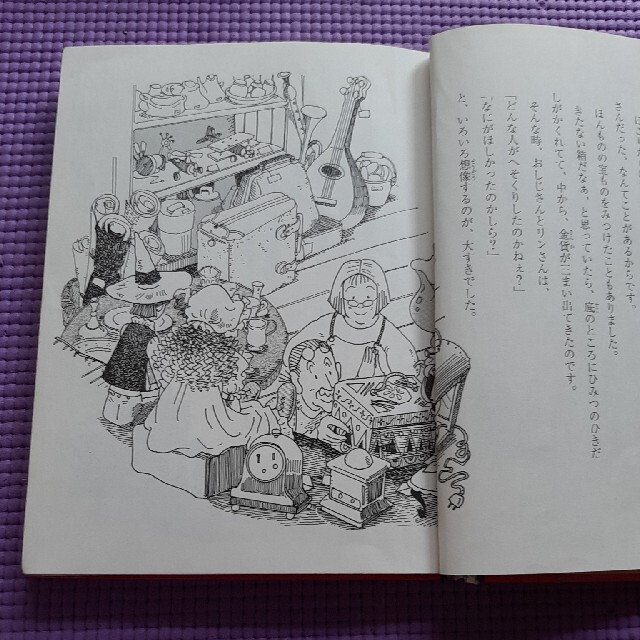 さんだった、なんてことがあるからです。
ほんものの宝ものをみつけたこともありました。
きたない箱だなあ、と思っていたら、底のところにひみつのひきだ
しがかくれてて、中から、金貨が二まい出てきたのです。
そんな時、おしじさんとリンさんは、
「どんな人がへそくりしたのかねえ?」
「なにがほしかったのかしら?」
と、いろいろ想像するのが、大すきでした。
1